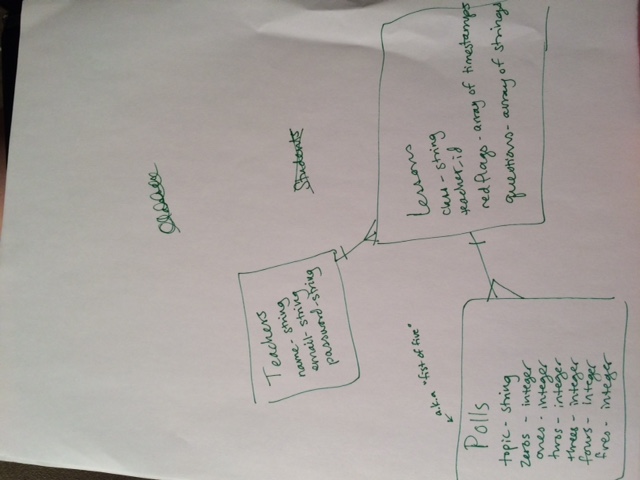 Students
Teachers
name - string
email - string
password - string
Lessons
class - string
teacher_id
redflags - array of timestamps
questions - array of strings
a.k.a "fist of five"
Polls
topic - string
zeros - integer
ones - integer
twos - integer
threes - integer
fours - integer
fives - integer